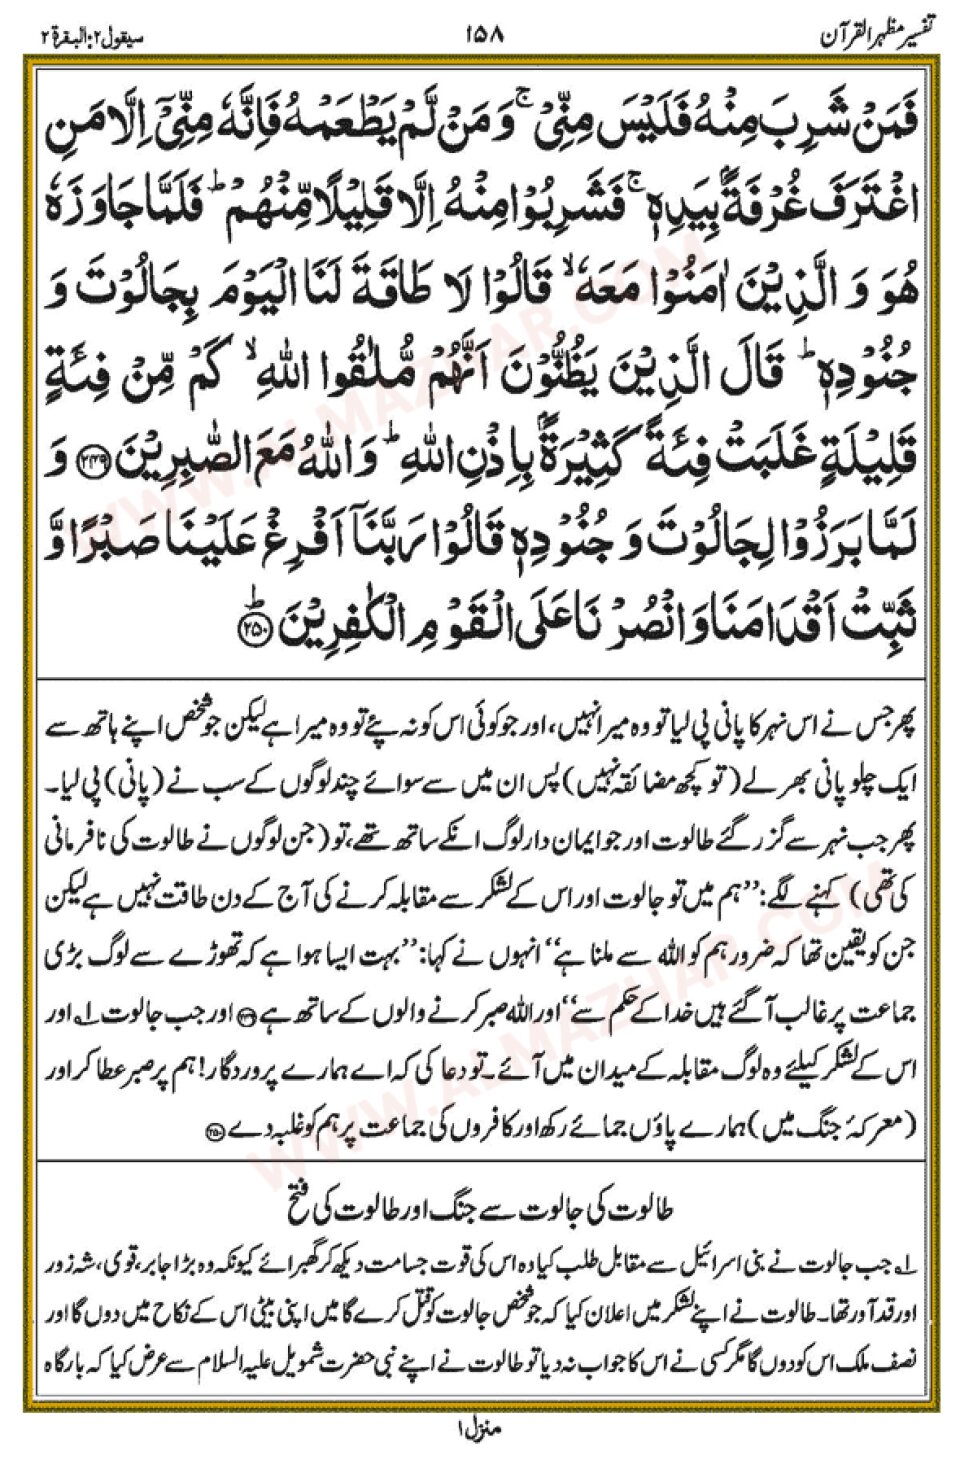 تفسیر مظہر القرآن ۱۵۸ سیقول ۲: البقرۃ ۲
فَمَنْ شَرِبَ مِنْهُ فَلَیْسَ مِنِّیْ ۚ وَ مَنْ لَّمْ یَطْعَمْهُ فَاِنَّهٗ مِنِّیْۤ اِلَّا مَنِ
اغْتَرَفَ غُرْفَةًۢ بِیَدِهٖ ۚ فَشَرِبُوْا مِنْهُ اِلَّا قَلِیْلًا مِّنْهُمْ ؕ فَلَمَّا جَاوَزَهٗ
هُوَ وَ الَّذِیْنَ اٰمَنُوْا مَعَهٗ ۙ قَالُوْا لَا طَاقَةَ لَنَا الْیَوْمَ بِجَالُوْتَ وَ
جُنُوْدِهٖ ؕ قَالَ الَّذِیْنَ یَظُنُّوْنَ اَنَّهُمْ مُّلٰقُوا اللهِ ۙ كَمْ مِّنْ فِئَةٍ
قَلِیْلَةٍ غَلَبَتْ فِئَةً كَثِیْرَةًۢ بِاِذْنِ اللهِ ؕ وَ اللهُ مَعَ الصّٰبِرِیْنَ ﴿۲۴۹﴾ وَ
لَمَّا بَرَزُوْا لِجَالُوْتَ وَ جُنُوْدِهٖ قَالُوْا رَبَّنَاۤ اَفْرِغْ عَلَیْنَا صَبْرًا وَّ
ثَبِّتْ اَقْدَامَنَا وَ انْصُرْنَا عَلَی الْقَوْمِ الْكٰفِرِیْنَ ﴿۲۵۰﴾ؕ
پھر جس نے اس نہر کا پانی پی لیا تو وہ میرا نہیں، اور جو کوئی اس کو نہ پئے تو وہ میرا ہے لیکن جو شخص اپنے ہاتھ سے
ایک چلو پانی بھر لے (تو کچھ مضائقہ نہیں) پس ان میں سے سوائے چند لوگوں کے سب نے (پانی) پی لیا۔
پھر جب نہر سے گزر گئے طالوت اور جو ایمان دار لوگ انکے ساتھ تھے، تو (جن لوگوں نے طالوت کی نافرمانی
کی تھی) کہنے لگے: ’’ہم میں تو جالوت اور اس کے لشکر سے مقابلہ کرنے کی آج کے دن طاقت نہیں ہے لیکن
جن کو یقین تھا کہ ضرور ہم کو اللہ سے ملنا ہے‘‘ انہوں نے کہا: ’’بہت ایسا ہوا ہے کہ تھوڑے سے لوگ بڑی
جماعت پر غالب آ گئے ہیں خدا کے حکم سے‘‘ اور اللہ صبر کرنے والوں کے ساتھ ہے ﴿۲۴۹﴾ اور جب جالوت ۱؎ اور
اس کے لشکر کیلئے وہ لوگ مقابلہ کے میدان میں آئے۔ تو دعا کی کہ اے ہمارے پروردگار! ہم پر صبر عطا کر اور
(معرکۂ جنگ میں) ہمارے پاؤں جمائے رکھ اور کافروں کی جماعت پر ہم کو غلبہ دے ﴿۲۵۰﴾
طالوت کی جالوت سے جنگ اور طالوت کی فتح
۱؎ جب جالوت نے بنی اسرائیل سے مقابل طلب کیا وہ اس کی قوت جسامت دیکھ کر گھبرائے کیونکہ وہ بڑا جابر، قوی، شہ زور
اور قد آور تھا۔ طالوت نے اپنے لشکر میں اعلان کیا کہ جو شخص جالوت کو قتل کرے گا میں اپنی بیٹی اس کے نکاح میں دوں گا اور
نصف ملک اس کو دوں گا مگر کسی نے اس کا جواب نہ دیا تو طالوت نے اپنے نبی حضرت شمویل علیہ السلام سے عرض کیا کہ بارگاہ
منزل ۱
WWW.ALMAZHAR.COM
WWW.ALMAZHAR.COM